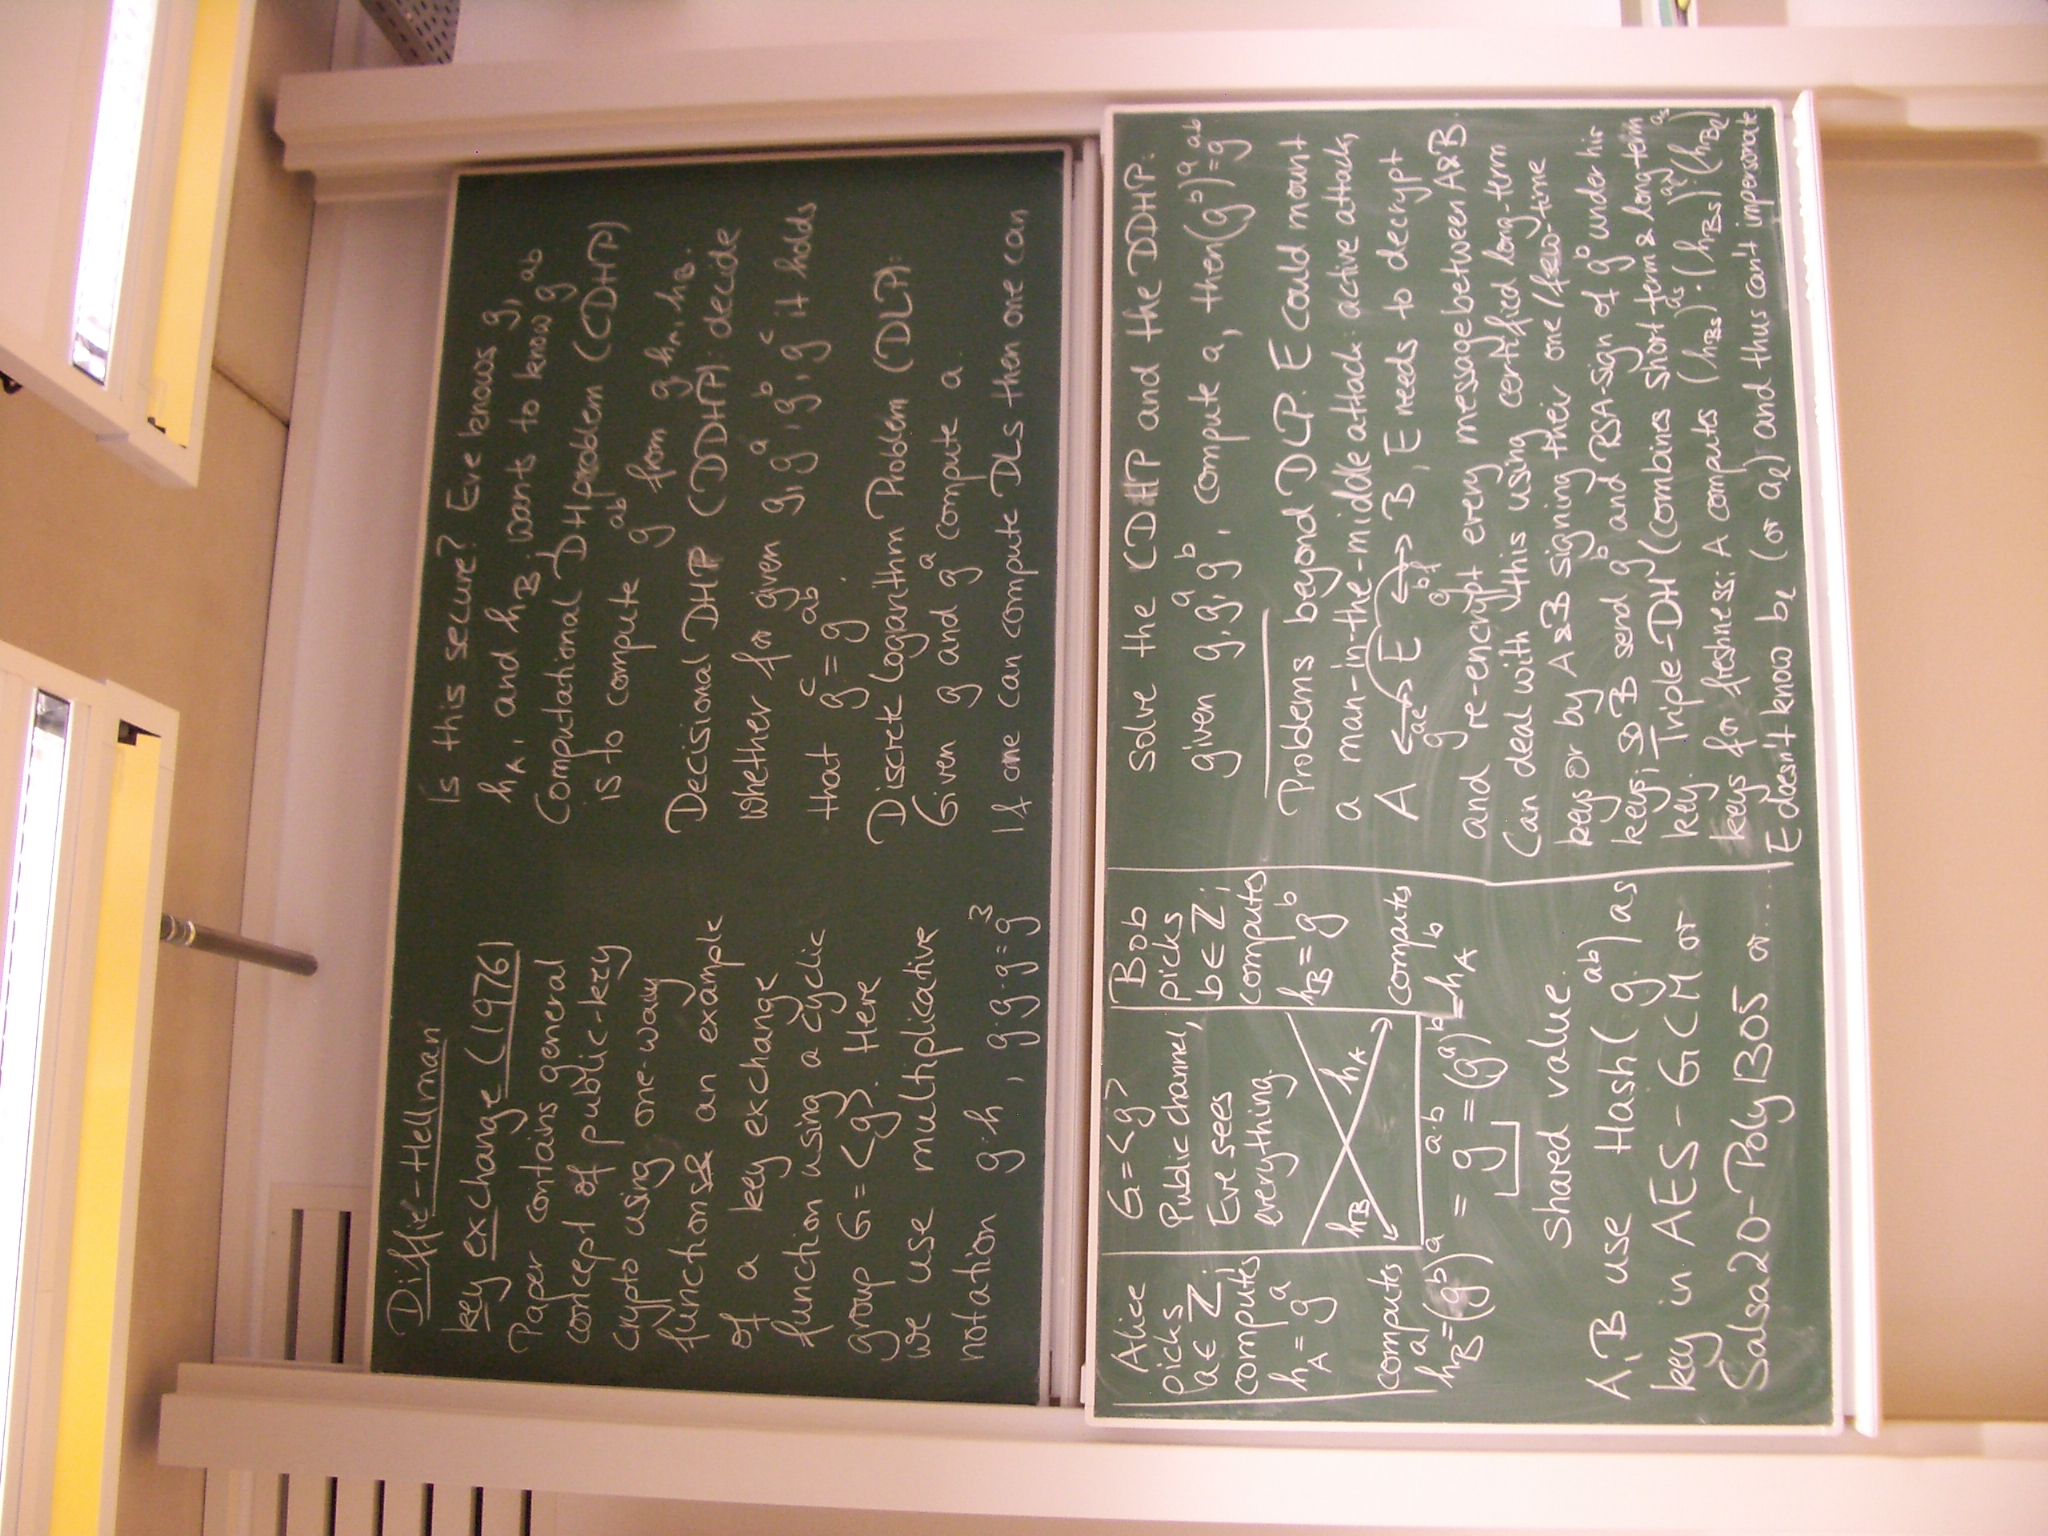 Diffie-Hellman
key exchange (1976)
Paper contains general
concept of public-key
crypto using one-way
functions & an example
of a key exchange
function using a cyclic
group G = <g>. Here
we use multiplicative
notation g·h, g·g·g = g³
Is this secure? Eve knows g,
h_A, and h_B; wants to know g^ab
Computational DH problem (CDHP)
is to compute g^ab from g, h_A, h_B.
Decisional DHP (DDHP): decide
whether for given g, g^a, g^b, g^c it holds
that g^c = g^ab.
Discrete Logarithm Problem (DLP):
Given g and g^a compute a.
If one can compute DLs then one can
Alice
picks
a∈ℤ;
computes
h_A = g^a
computes
h_B^a = (g^b)^a = g^a·b = (g^a)^b = h_A^b
G = <g>
Public channel,
Eve sees
everything.
h_B h_A
Bob
picks
b∈ℤ;
computes
h_B = g^b
computes
shared value.
A, B use Hash(g^ab) as
key in AES-GCM or
Salsa20-Poly1305 or ...
solve the CDHP and the DDHP:
given g, g^a, g^b, compute a, then (g^b)^a = g^ab
Problems beyond DLP: E could mount
a man-in-the-middle attack: active attack,
A ↔ E ↔ B, E needs to decrypt
g^ae g^bf
and re-encrypt every message between A&B.
Can deal with this using certified long-term
keys or by A&B signing their one/few-time
keys; so B send g^b and RSA-sign of g^b under his
key. Triple-DH (combines short term & long term
keys for freshness: A computes (h_Bs)^as · (h_Bs)^aℓ · (h_Bℓ)^as
E doesn't know bℓ (or aℓ) and thus can't impersonate